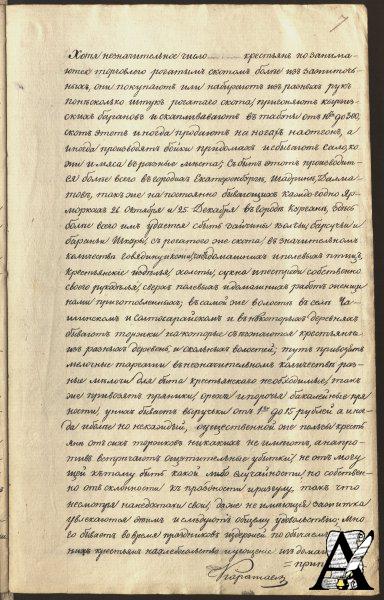 7
Хотя незначительное число крестьян но занима-
ются торговлею рогатым скотом более из зажиточ-
ных, они покупают или набирают из разных рук
по нѣсколько штук рогатаго скота, пригоняют киргиз-
ских баранов и скапливают в табун от до 300,
скот этот иногда продают на ногах на отгон, а
иногда производят бойки при домах и сбывают сало, ко-
жи и мяса в разные мѣста; Сбыт этот производит-
ся более всего в городах Екатеринбург, Шадрин, Далма-
тов, так же на постоянно бывающих каждогодно Яр-
морках 26 Октября и 25 Декабря в городѣ Кургани, здѣсь
более всего им удается сбыть
бараньи шкуры, с рогатаго же скота, в значительном
количествѣ говядину домашних и полевых птиц,
Крестьянскіе издѣлья холсты, сукна и пестряди собственно
своего рукодѣлья, сверх полевых и домашних работ женщи-
нами приготовленных; в самой же волости в селѣ Ча-
шинском и Сычевском и в нѣкоторых деревнях
бывают торжки на которые съѣзжаются крестьяне
из разных деревень и окольных волостей; тут привозят
мелочные торгаши в незначительном количествѣ раз-
ные мелочи для быта крестьянскаго необходимые, так
же привозят пряники, орехи и прочья бакалейные пря-
ности у них бывает выручки от до 15 рублей а иног-
да и более но не каждый, существенной же пользы кресть-
ян от сих торжков никаких не имеют, а напро-
тив встрѣчают ощутительные убытки не от могу-
щей к тому быть какой либо случайности, но собствен-
но от склонности к праздности и разгулу, так что
несмотря на недостатки свои, даже не имеющія зажитка
увлекаются этим и слѣдуют общему удовольствію, мно-
го бывает во время праздников издержек по обычаем
крестьян на хлебосольство и угощение их домашн
А